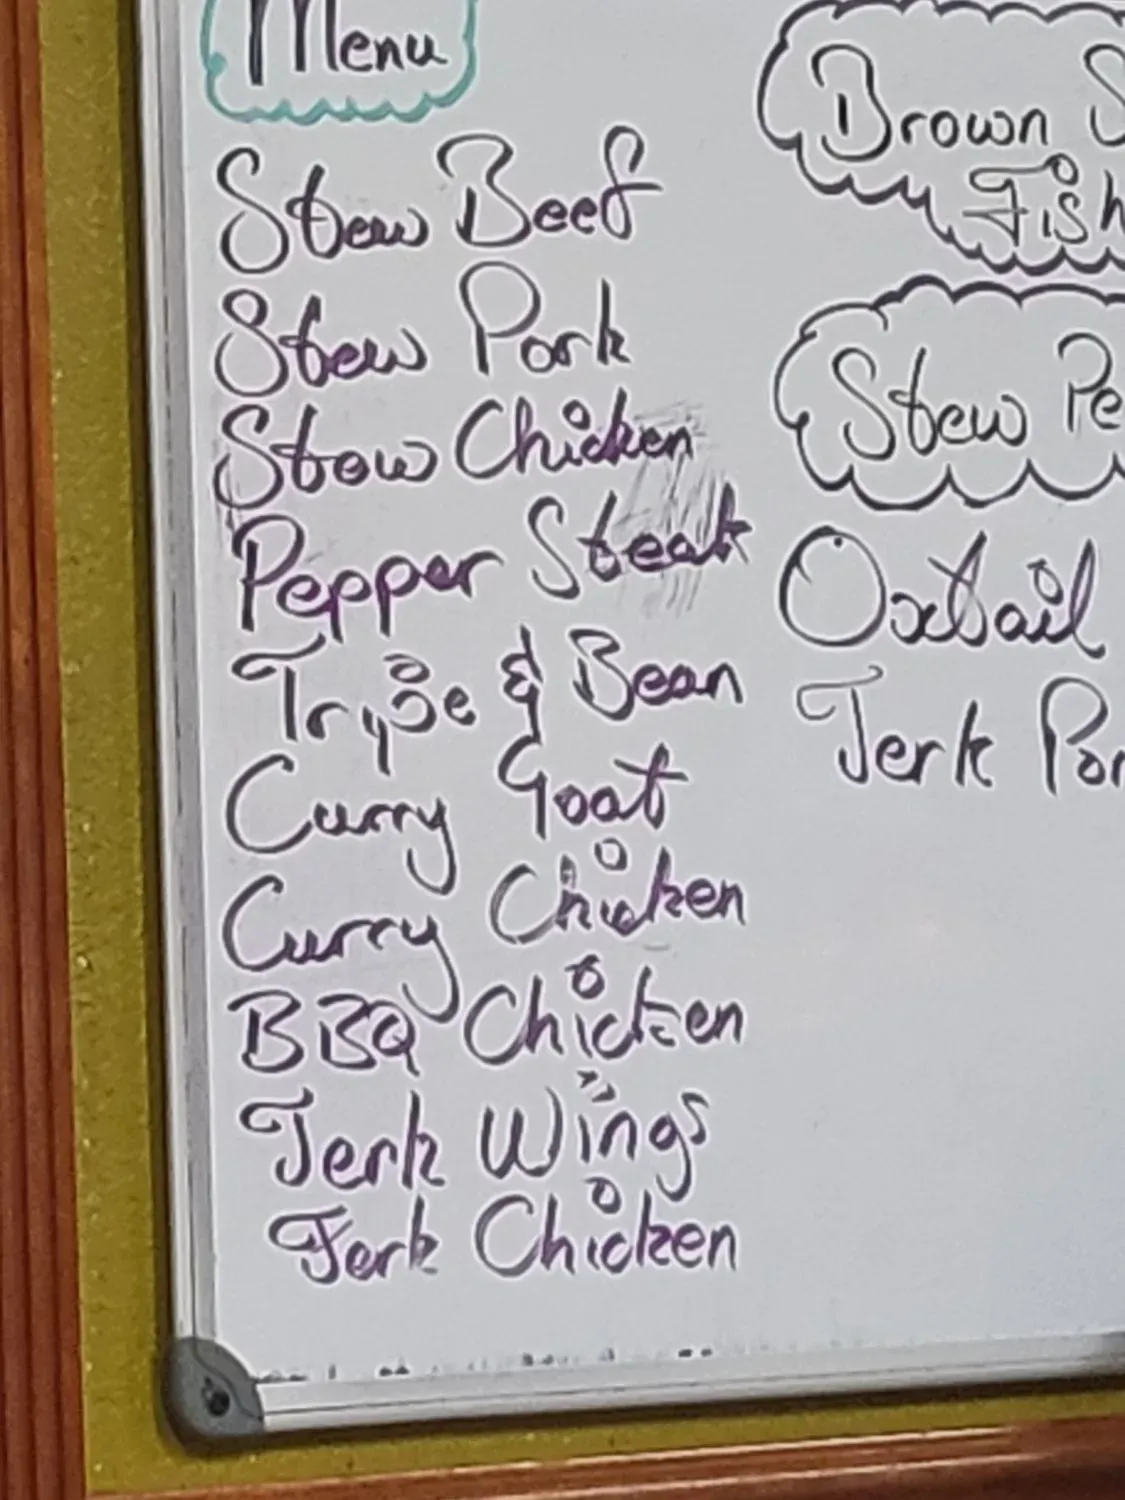 Menu
Stew Beef
Stew Pork
Stew Chicken
Pepper Steak
Tripe & Bean
Curry Goat
Curry Chicken
BBQ Chicken
Jerk Wings
Jerk Chicken
Brown S
Fish
Stew Pe
Oxtail
Jerk Por